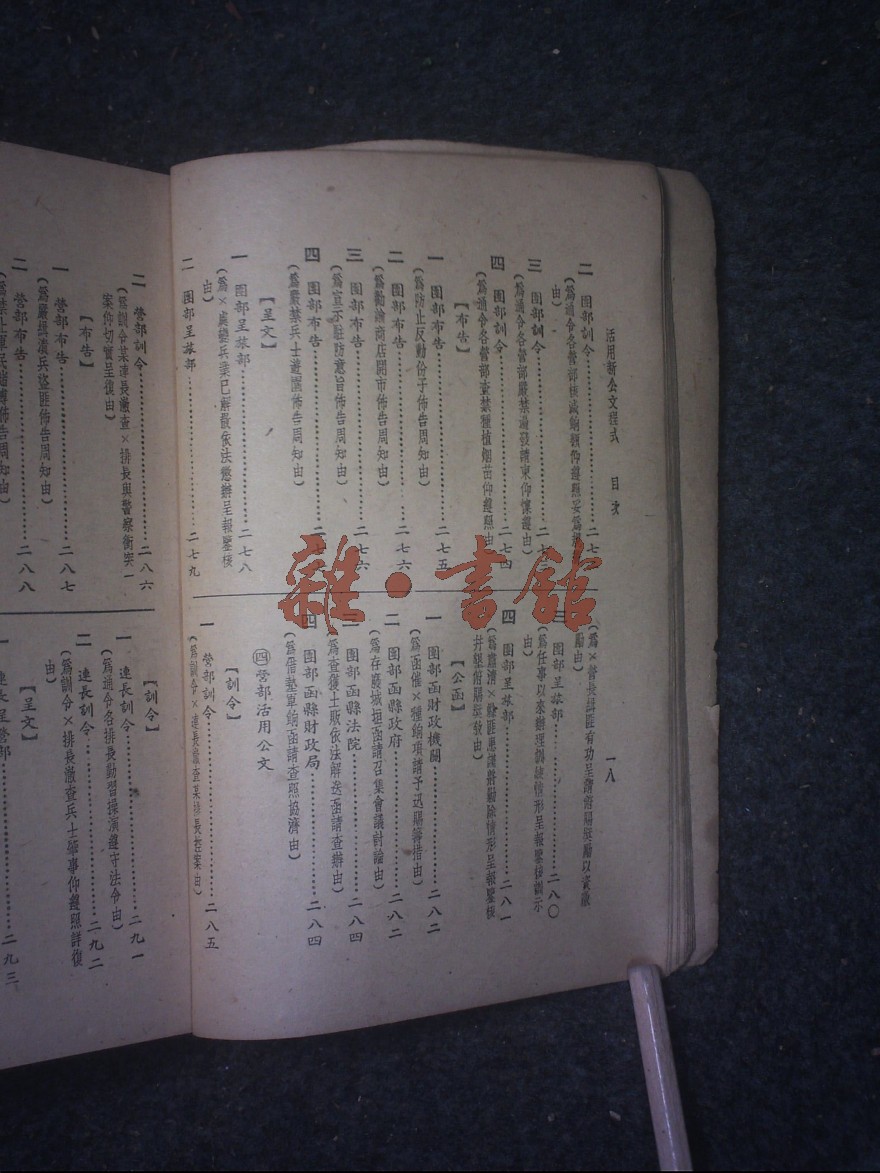 活用新公文程式 目次 一八
二 團部訓令
由)
三 團部訓令
(爲通令各營部嚴禁
四 團部訓令……二七四
(爲通令各營部查禁種植烟苗仰遵照由)
【布告】
一 團部布告……二七五
(爲防止反動份子佈告周知由)
二 團部布告……二七六
(爲勸諭商店開市佈告周知由)
三 團部布告……二七六
(爲宣示駐防意旨佈告周知由)
四 團部布告
(爲嚴禁兵士遊團佈告周知由)
【呈文】
一 團部呈旅部……二七八
(爲×處變兵業已解散依法懲辦呈報鑒核
由)
二 團部呈旅部……二七九
(爲×營長緝匪有功呈請
勵由)
三 團部呈旅部……二八〇
(爲任事以來辦理訓練情形呈報鑒核訓示
由)
四 團部呈旅部……二八一
(爲肅清×餘匪
【公函】
一 團部函財政機關……二八二
(爲函催×種餉項請予迅賜籌措由)
二 團部函縣政府……二八二
(爲存廢城垣函請召集會議討論由)
三 團部函縣法院……二八四
(爲查獲土販依法解送函請查辦由)
四 團部函縣財政局……二八四
(爲借墊軍餉函請查照協濟由)
㊃營部活用公文
【訓令】
一 營部訓令……二八五
(爲訓令×連長澈查某排長控案由)
二 營部訓令……二八六
(爲訓令某連長澈查×排長與警察衝突一
案仰切實呈復由)
【布告】
一 營部布告……二八七
(爲嚴緝潰兵盜匪佈告周知由)
二 營部布告……二八八
(爲禁止軍民賭博佈告周知由)
【訓令】
一 連長訓令……二九一
(爲通令各排長勤習操演遵守法令由)
二 連長訓令……二九二
(爲訓令×排長澈查兵士肇事仰遵照詳復
由)
【呈文】
一 連長呈營部……二九三
雜·書館